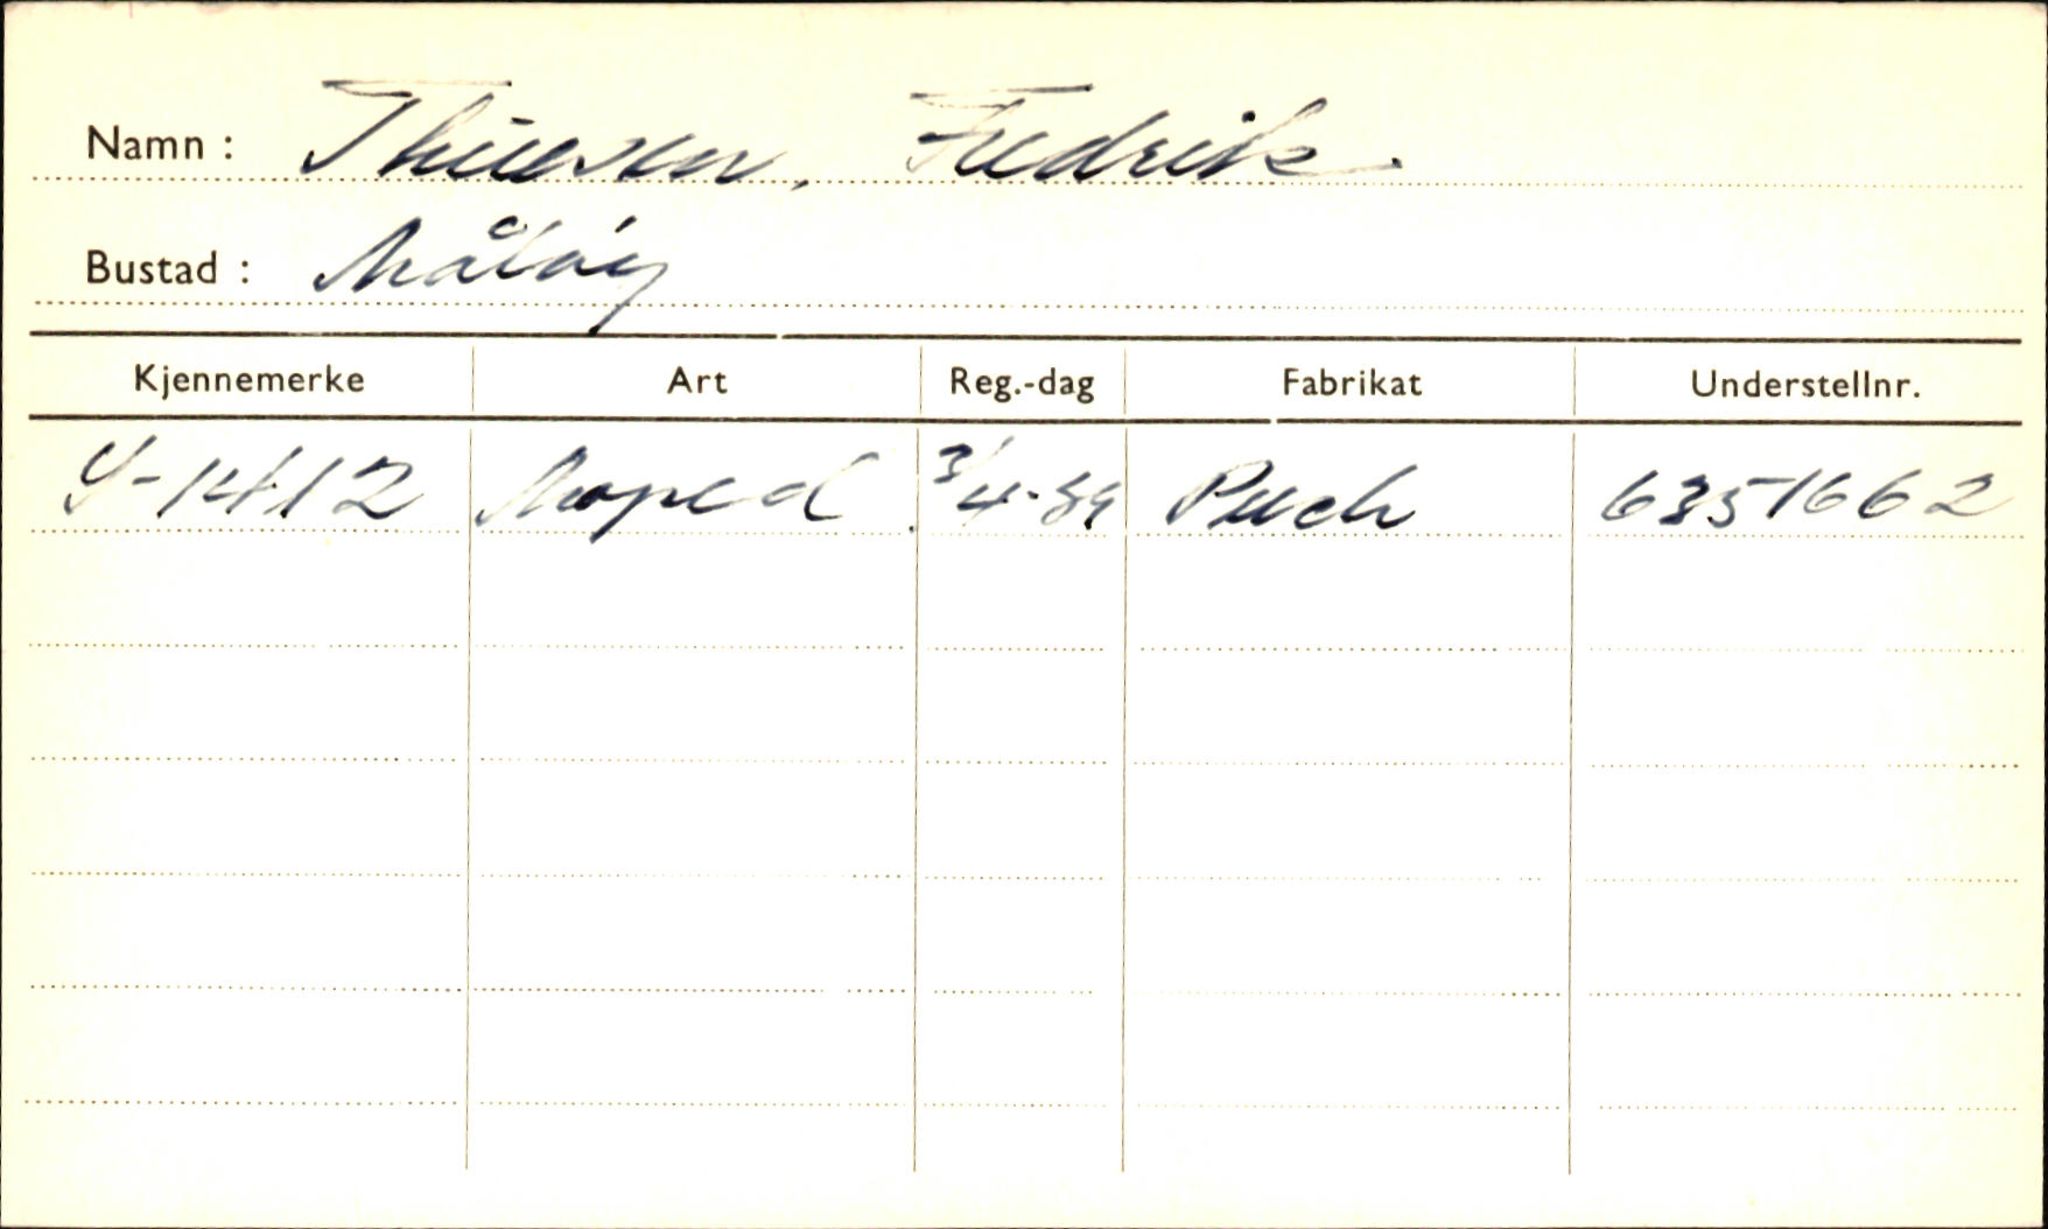 Namn : Thuesen, Fredrik
Bustad : Måløy
Kjennemerke Art Reg.-dag Fabrikat Understellnr.
Y-1412 Moped 3/4-89 Puch 6351662